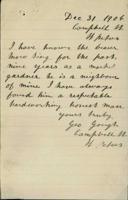 Dec 31 1906
Campbell St.
W. Perth
I have known the bearer
Mow Sing for the past
nine years as a market
gardner he is a neighbour
of mine I have always
found him a respectable
hardworking honest man
yours truly
Geo Gough
Campbell St.
W. Perth